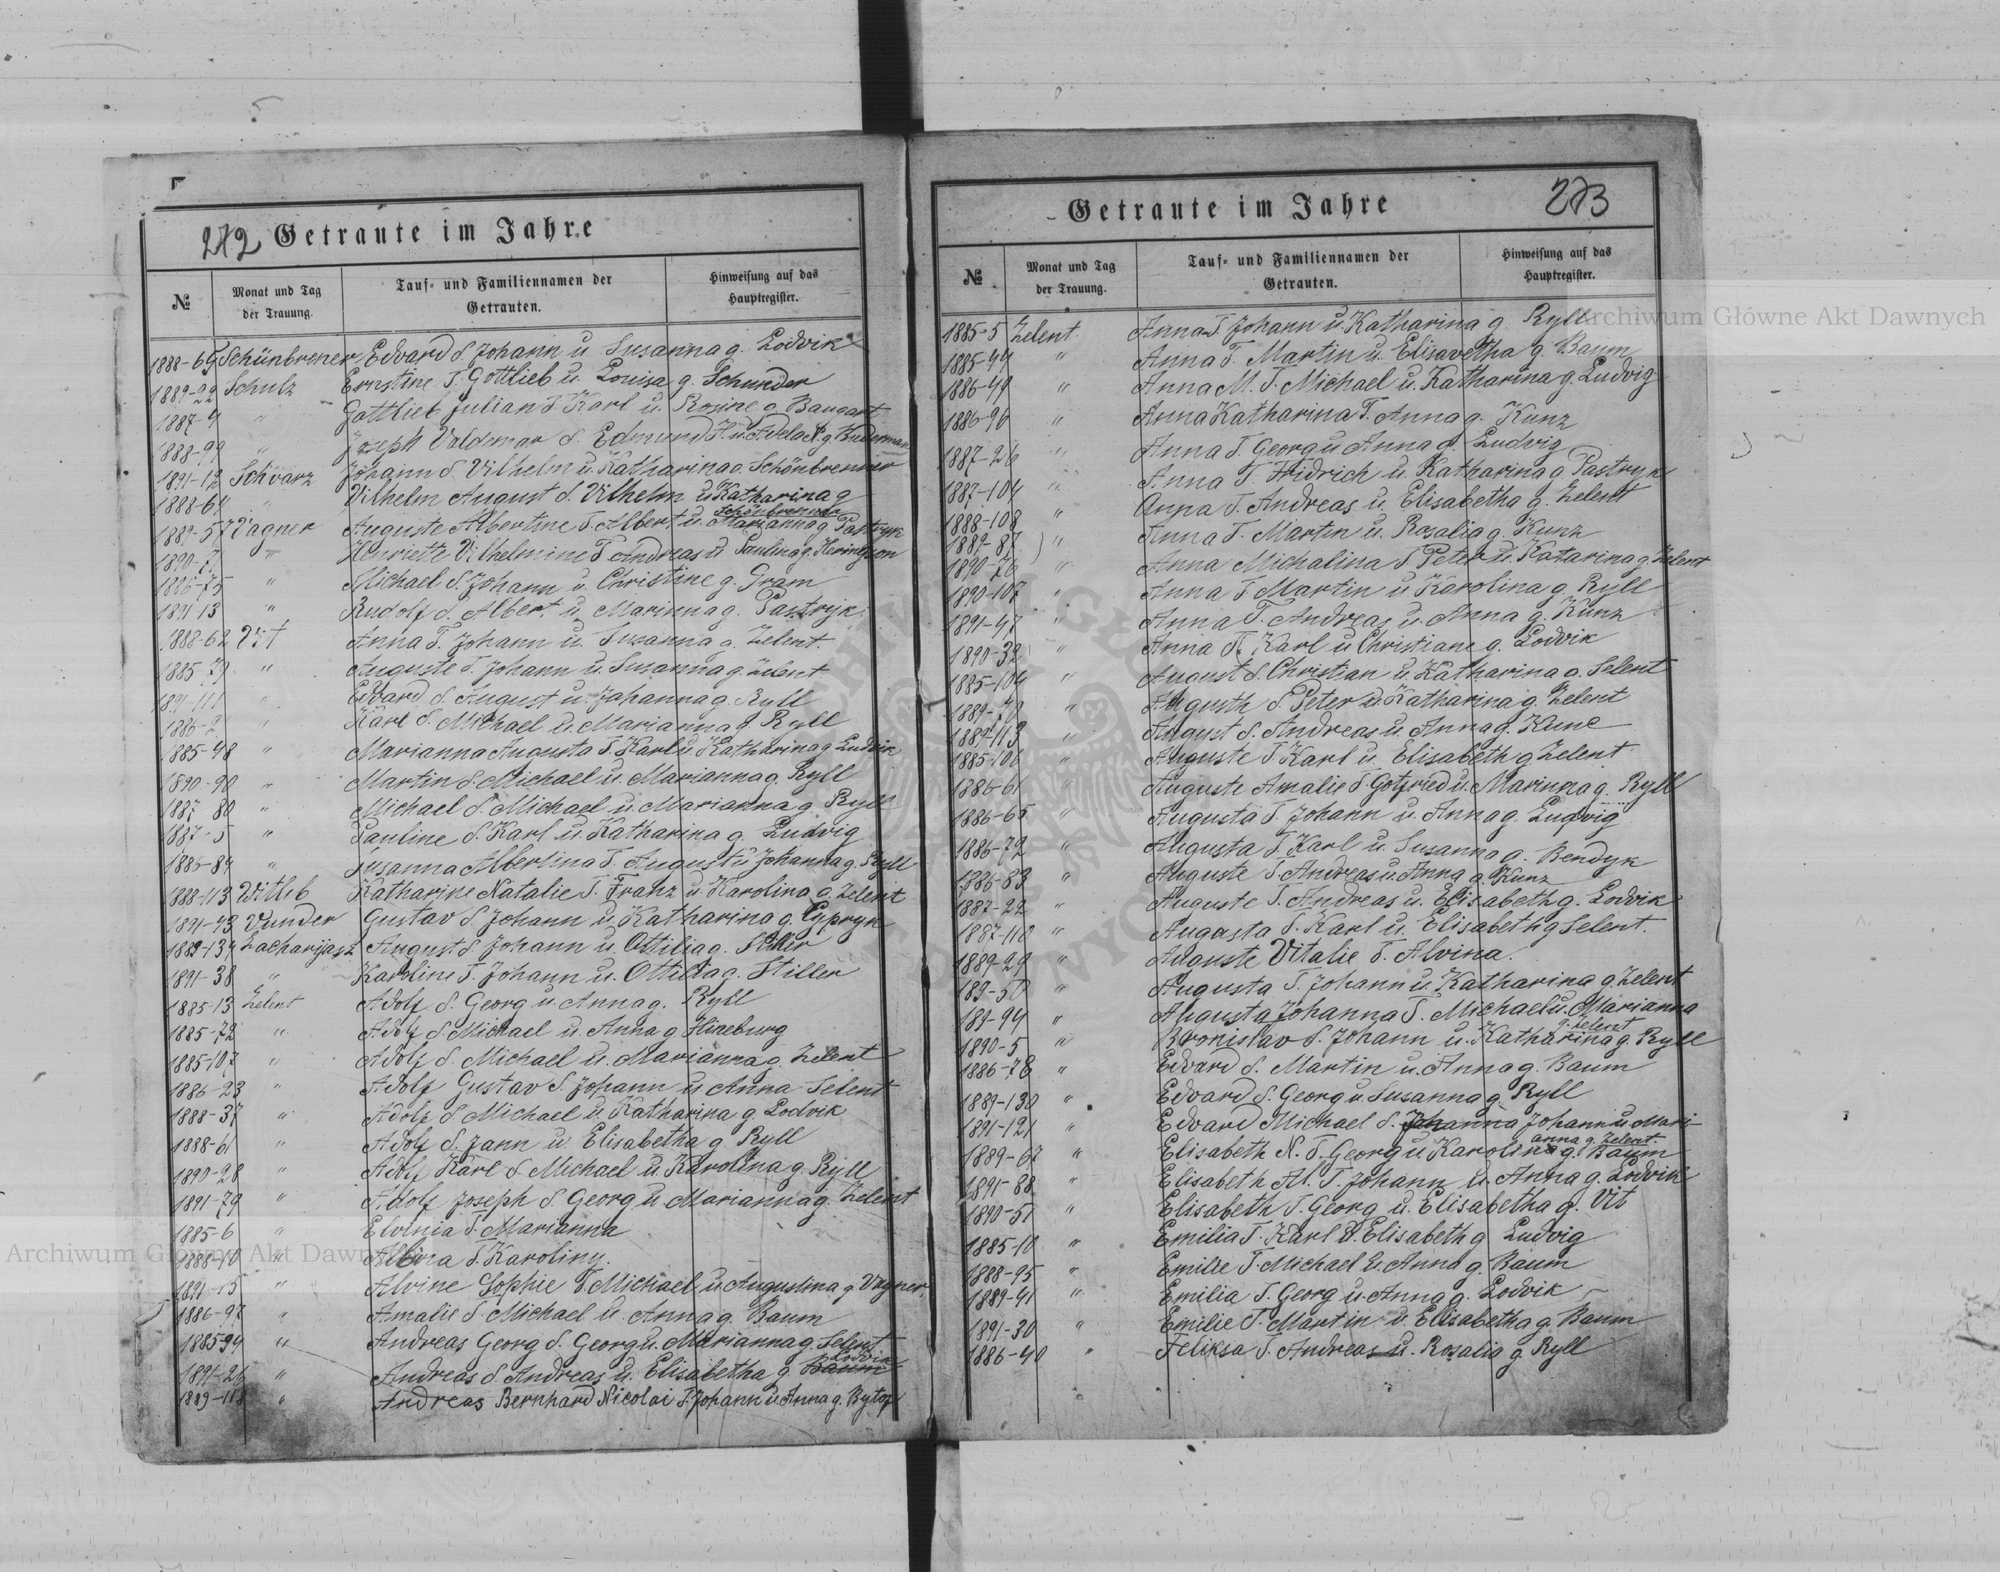 272 Getraute im Jahre
№ Monat und Tag der Trauung. Tauf- und Familiennamen der Getrauten. Hinweisung auf das Hauptregister.
1888-69 Schünbrener Edvard S. Johann u. Susanna g. Lodvik
1889-22 Schulz Ernstine T. Gottlieb u. Louise g. Schunder
1887-9 " Gottlieb Julian S Karl u. Rosine g. Baugart
1888-99 " Joseph Valdmar S. Edmund
1891-12 Schvarz Johann S. Vilhelm u. Katharina g. Schönbrenner
1888-64 " Vilhelm August S. Vilhelm u. Katharina g Schönbrenner
1889-57 Vagner Auguste Albertine T. Albert u. Marianna g. Pastryk
1890-71 " Henriette Vilhelmine T Andreas u Paulina g.
1886-75 " Michael S. Johann u. Christine g. Gram
1891 13 " Rudolf S. Albert. u. Marinna g. Pastryk.
1888-62 Vit Anna T. Johann u. Susanna g. Zelent.
1885 79 " Auguste T. Johann u. Susanna g. Zelent
1891-111 " Edvard S. August u. Johanna g. Ryll
1886-2 " Karl S. Michael u. Marianna g Ryll
1885-48 " Marianna Augusta T. Karl u. Katharina g. Ludvik
1890-90 " Martin S. Michael u. Marianna g. Ryll
1887 80 " Michael S. Michael u. Marianna g. Ryll
1887-5 " Pauline S. Karl u. Katharina g. Ludvig
1886-84 " Susanna Albertina T. August u Johanna g. Ryll
1888-113 Witlib Katharine Natalie T. Franz u. Karolina g. Zelent
1891-93 Vunder Gustav S. Johann u. Katharina g. Cypryn
1889-134 Zacharijasz August S. Johann u. Ottilia g.
1891-38 " Karoline T. Johann u. Ottilia g. Stiller
1885-13 Zelent Adolf S. Georg u. Anna g. Ryll
1885-72 " Adolf S Michael u. Anna g Hineburg
1885-107 " Adolf S. Michael u. Marianna g. Zelent
1886-23 " Adolf Gustav S Johann u Anna Selent
1888-37 " Adolf S Michael u. Katharina g Lodvik
1888-61 " Adolf S. Jann u Elisabetha g. Ryll
1890-28 " Adolf Karl S Michael u Karolina g. Ryll
1891-79 " Adolf Joseph S Georg u Marianna g. Zelent
1885-6 " Elvinia T. Marianna
1888-10 " Albina S. Karoliny.
1891-15 " Alvine Sophie T Michael u Augustina g Vagner
1886-97 " Amalie S. Michael u. Anna g. Baum
1885 94 " Andreas Georg S. Georg u. Marianna g. Selent.
1891-26 " Andreas S Andreas u. Elisabetha g. Baum Lodvik
1889-118 " Andreas Bernhard Nicolai S. Johann u. Anna g. Bytof
Getraute im Jahre 273
№ Monat und Tag der Trauung. Tauf- und Familiennamen der Getrauten. Hinweisung auf das Hauptregister.
1885-5 Zelent. Anna T Johann u. Katharina g Ryll
1885-44 " Anna T. Martin u. Elisavetha g. Baum
1886-49 " Anna M. T. Michael u. Katharina g. Ludvig
1886-96 " Anna Katharina T. Anna g. Kunz
" Anna T. Georg u Anna g. Ludvig
1887-26 " Anna T Fridrich u. Katharina g Pastryk
1887-104 " Anna T. Andreas u. Elisabetha g. Zelent
1888-108 " Anna T. Martin u. Rosalia g. Kunz
1889-87 " Anna Michalina T Peter u. Katarina g. Zelent
1890-76 " Anna T Martin u. Karolina g. Ryll
1890-107 " Anna T. Andreas u. Anna g. Kunz
1891-47 " Anna T. Karl u Christiane g. Lodvik
1890-32 " August S. Christian u. Katharina g. Selent
1885-104 " Augusth S Peter u. Katharina g. Zelent
1889-78 " August S. Andreas u. Anna g. Kunc
1889-113 " Auguste T. Karl u. Elisabeth g Zelent
1885-106 " Auguste Amalie T Gotfried u. Marinna g. Ryll
1886 61 " Augusta T. Johann u. Anna g. Ludvig
1886-65 " Augusta T Karl u. Susanna g. Bendyk
1886-72 " Auguste T. Andreas u Anna g. Kunz
1886-83 " Auguste T. Andreas u. Elisabeth g. Lodvik
1887-22 " Augasta T. Karl u. Elisabeth g Selent.
1887-110 " Auguste Vitalie T. Alvina.
1889-29 " Augusta T. Johann u Katharina g. Zelent
189-50 " Augusta Johanna T. Michael u. Marianna g. Zelent
189-94 " Bronislav S. Johann u. Katharina g. Ryll
1890-5 " Edvard S. Martin u. Anna g. Baum
1886-78 " Edvard S. Georg u Susanna g Ryll
1889-130 " Edvard Michael S. Johanna Johann u Mari-
anna g. Zelent.
1891-121 " Elisabeth N. T. Georg u. Karolina g. Baum
1889-67 " Elisabeth M. T. Johann u. Anna g. Lodvik
1891-88 " Elisabeth T. Georg u. Elisabetha g. Vit
1890-51 " Emilia T. Karl u Elisabeth g Ludvig
1885-10 " Emilie T. Michael u Anna g. Baum
1888-95 " Emilia T. Georg u. Anna g. Lodvik
1889-41 " Emilie T. Martin u. Elisabetha g. Baum
1891-30 " Feliksa T. Andreas u. Rosalia g. Ryll
1886-40 "
Archiwum Główne Akt Dawnych
Archiwum Główne Akt Dawnych